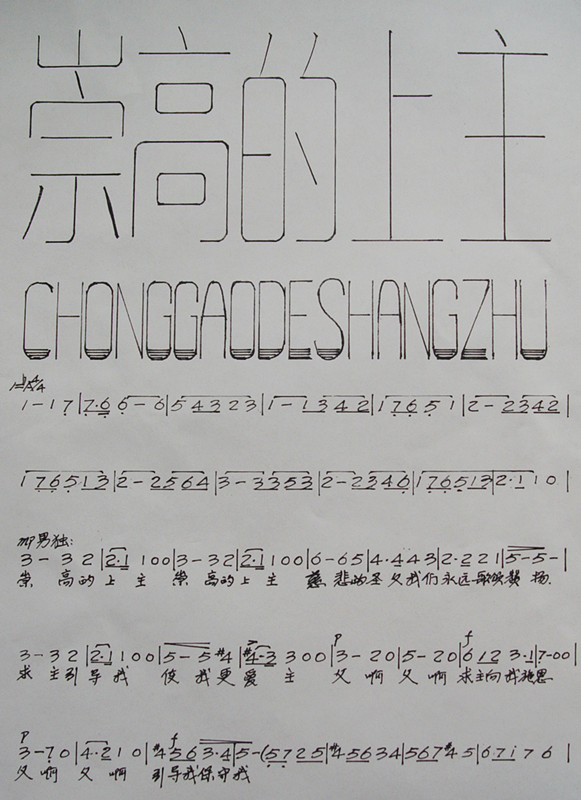 崇高的上主
CHONGGAODESHANGZHU
1-17|7·66-6|5432 3|1-1342|17651|2-2342|
176513|2-2564|3-3353|2-2346|176513|2·110|
男独:
3-32|2·1100|3-32|2·1100|6-65|4·443|2·221|5-5-|
崇高的上主 崇高的上主 慈悲的圣父我们永远歌颂赞扬.
3-32|2·1100|5-5#4|#4-3300|3-20|5-20|6123·1|7-00|
求主引导我 使我更爱主 父啊父啊求主向我施恩
3-70|4·210|#4563·4|5-(5725|#45634|567#45|67176|
父啊父啊 引导我保守我